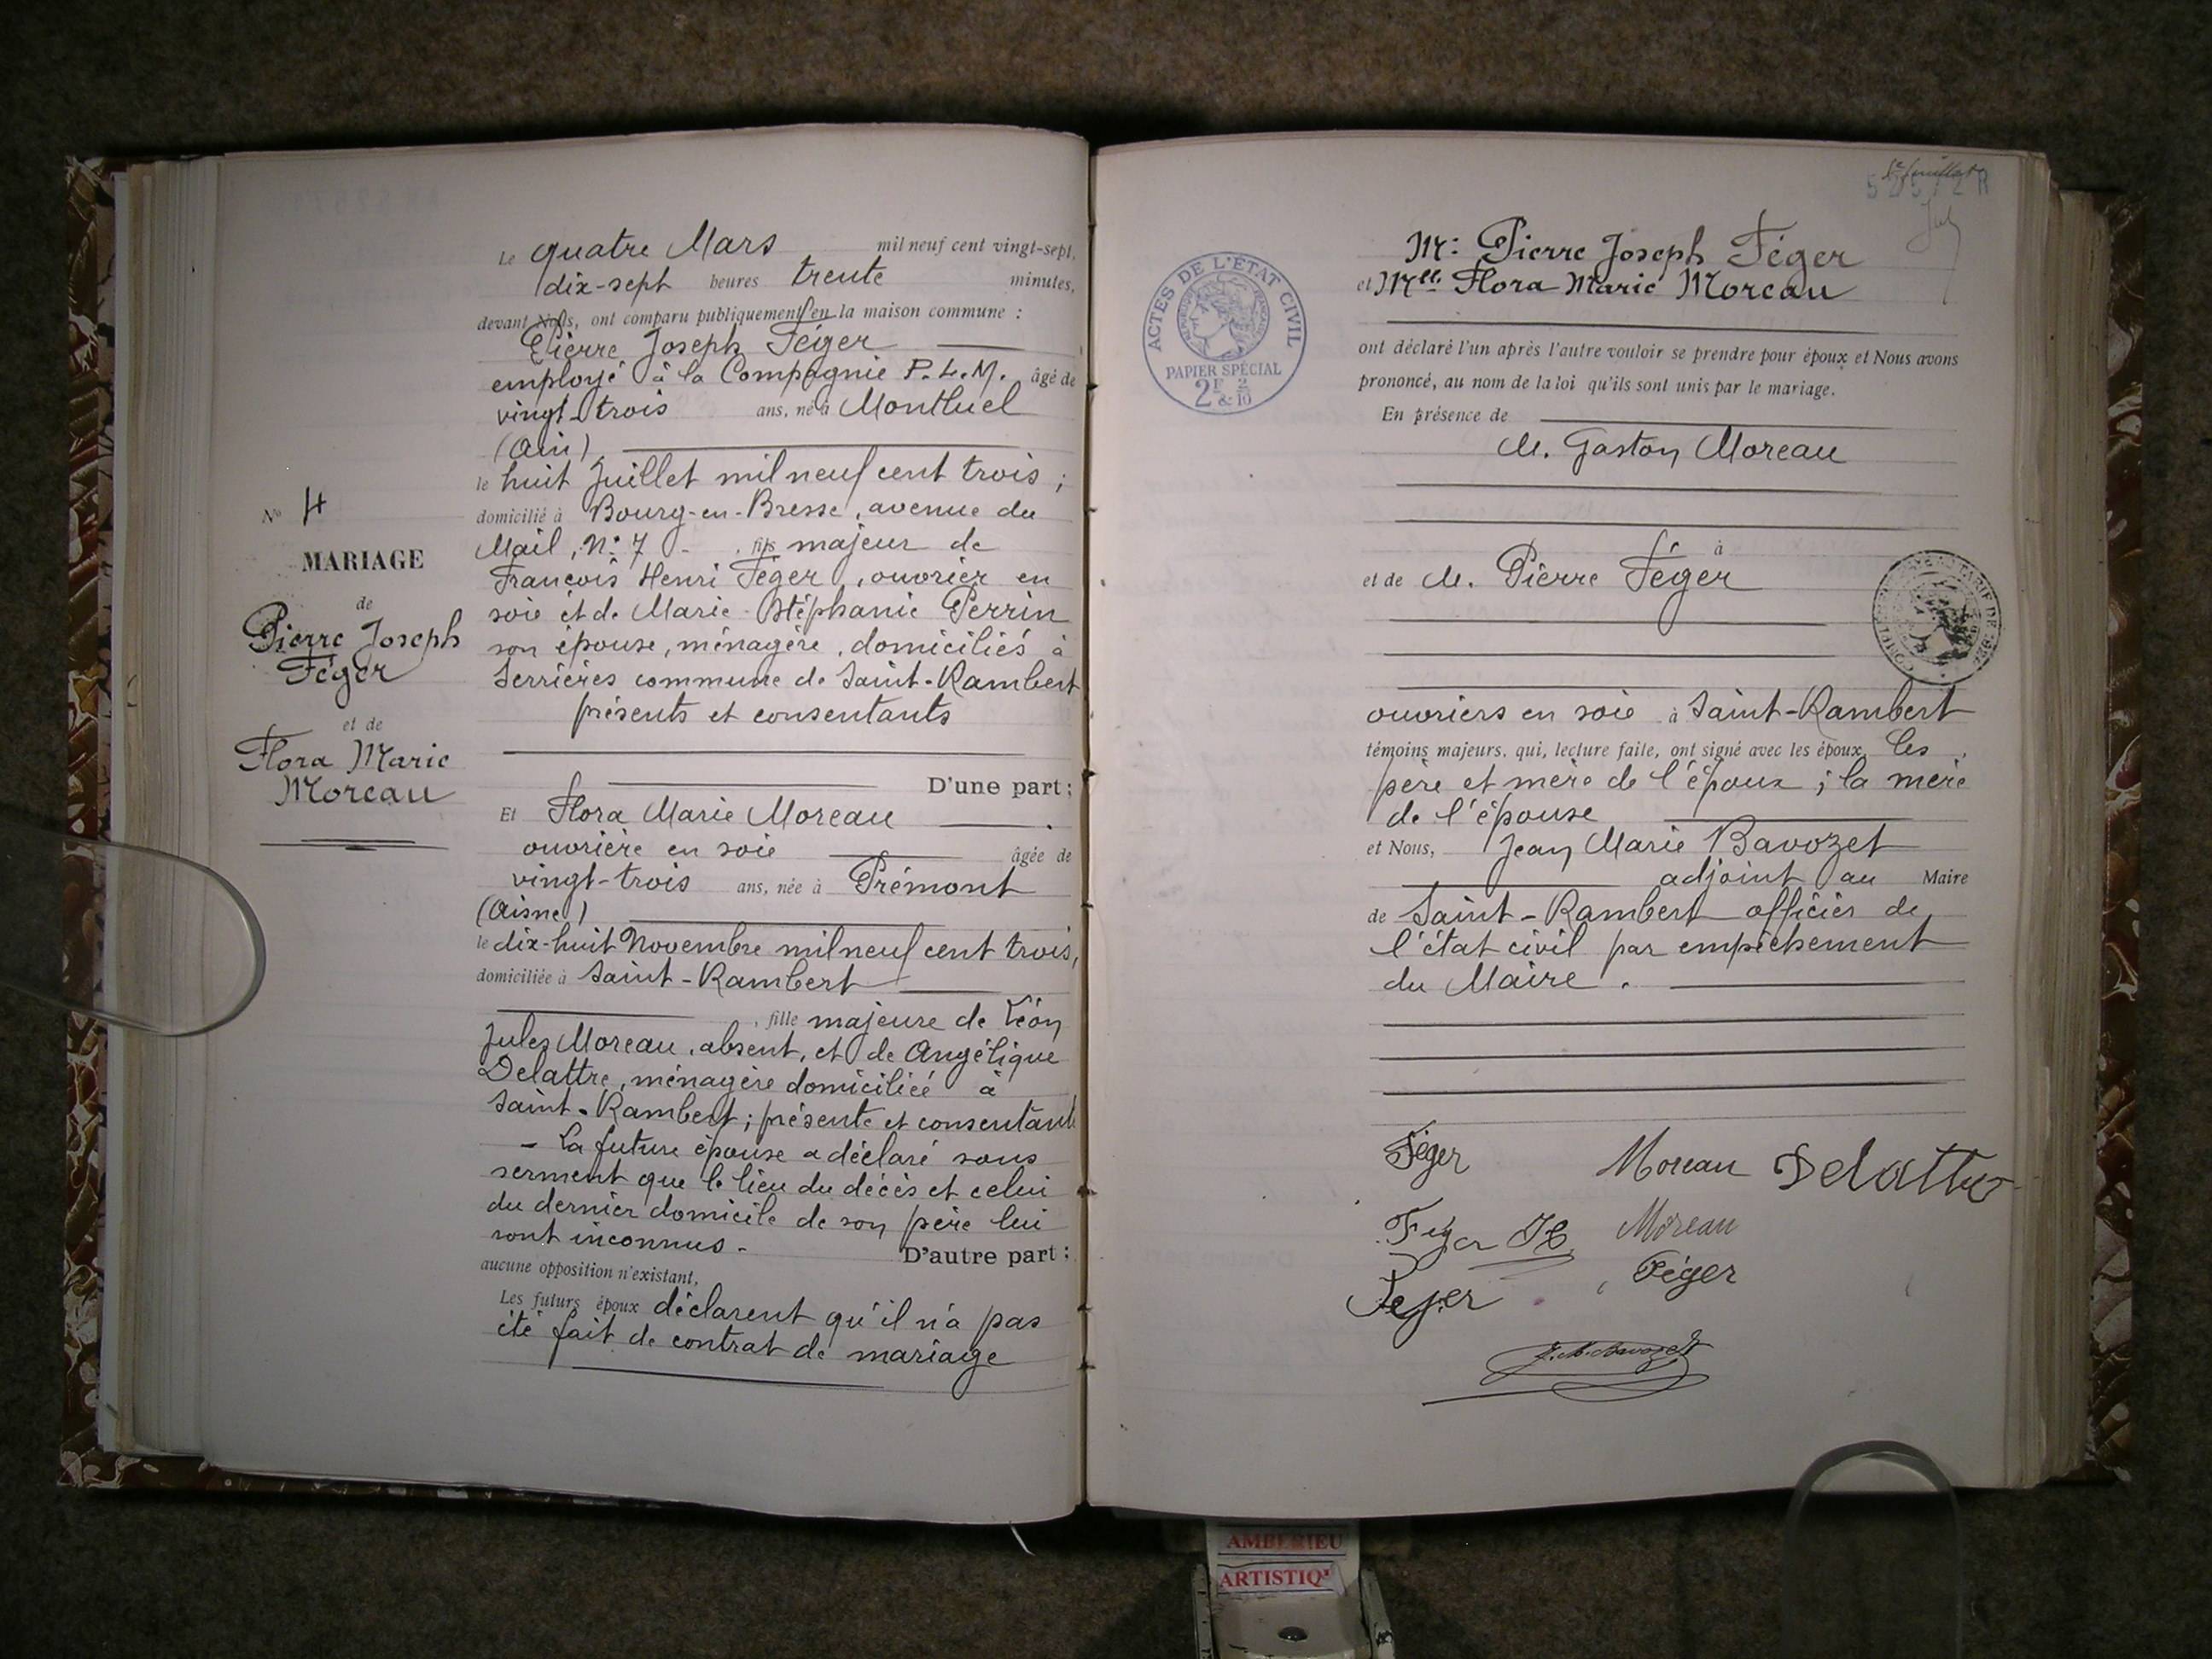 Le quatre Mars mil neuf cent vingt-sept,
dix-sept heures trente minutes,
devant Nous, ont comparu publiquement en la maison commune :
Pierre Joseph Féger
employé à la Compagnie P.L.M. âgé de
vingt-trois ans, né à Montluel
(Ain)
le huit Juillet mil neuf cent trois ;
domicilié à Bourg-en-Bresse, avenue du
Mail, N° 7 , fils majeur de
François Henri Féger, ouvrier en
soie et de Marie-Stéphanie Perrin
son épouse, ménagère, domiciliés à
Serrières commune de Saint-Rambert
présents et consentants
D'une part :
Et Flora Marie Moreau
ouvrière en soie âgée de
vingt-trois ans, née à Prémont
(Aisne)
le dix-huit Novembre mil neuf cent trois,
domiciliée à Saint-Rambert
, fille majeure de Léon
Jules Moreau, absent, et de Angélique
Delattre, ménagère domiciliée à
Saint-Rambert ; présente et consentante
- La future épouse a déclaré sous
serment que le lieu du décès et celui
du dernier domicile de son père lui
sont inconnus. D'autre part :
aucune opposition n'existant,
Les futurs époux déclarent qu'il n'a pas
été fait de contrat de mariage
N° 4
MARIAGE
de
Pierre Joseph
Féger
et de
Flora Marie
Moreau
ACTES DE L'ÉTAT CIVIL
RÉPUBLIQUE FRANÇAISE
PAPIER SPÉCIAL
2F & 2/10
feuillet
Mr Pierre Joseph Féger
et Mlle Flora Marie Moreau
ont déclaré l'un après l'autre vouloir se prendre pour époux et Nous avons
prononcé, au nom de la loi qu'ils sont unis par le mariage.
En présence de
M. Gaston Moreau
à
et de M. Pierre Féger
ouvriers en soie à Saint-Rambert
témoins majeurs. qui, lecture faite, ont signé avec les époux, les
père et mère de l'époux ; la mère
de l'épouse
et Nous, Jean Marie Bavozet
adjoint au Maire
de Saint-Rambert officier de
l'état civil par empêchement
du Maire.
Féger Moreau Delattre
Féger H Moreau
Feger Féger
J. M. Bavozet
AMBERIEU
ARTISTIQ